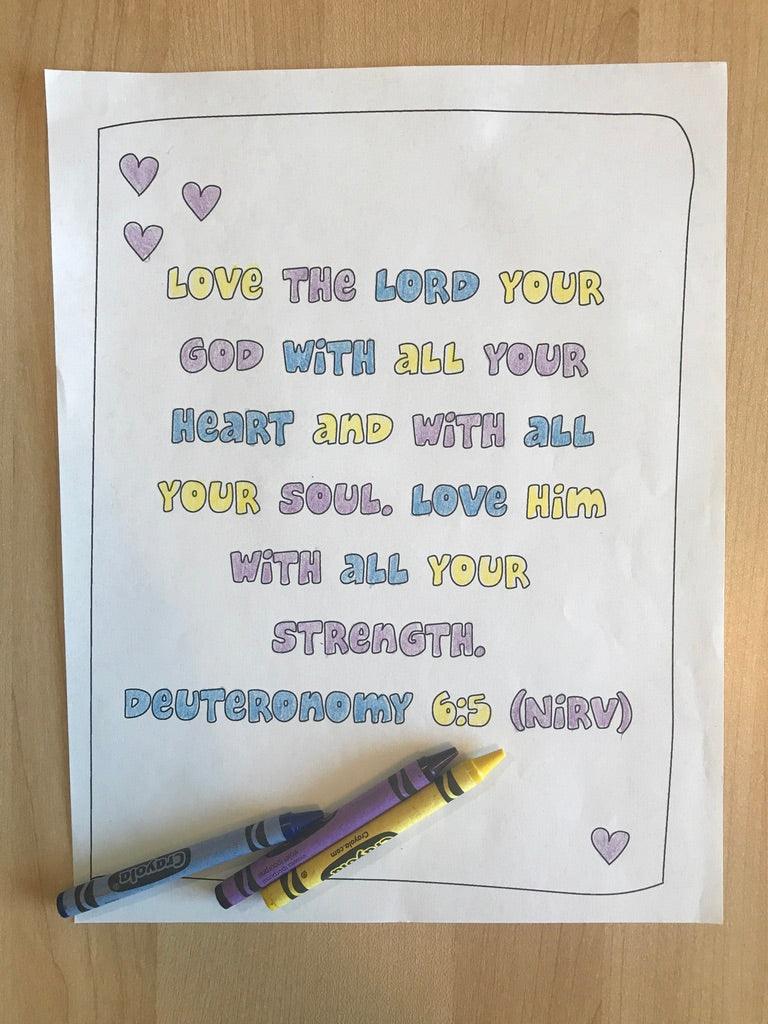 Love THe LORD YOUR
GOD WiTH all YOUR
HeaRT and WiTH all
YOUR SOUL. LOVe Him
WiTH all YOUR
STRenGTH.
DeUTeROnOMY 6:5 (NiRV)
Crayola
Crayola.com
Crayola